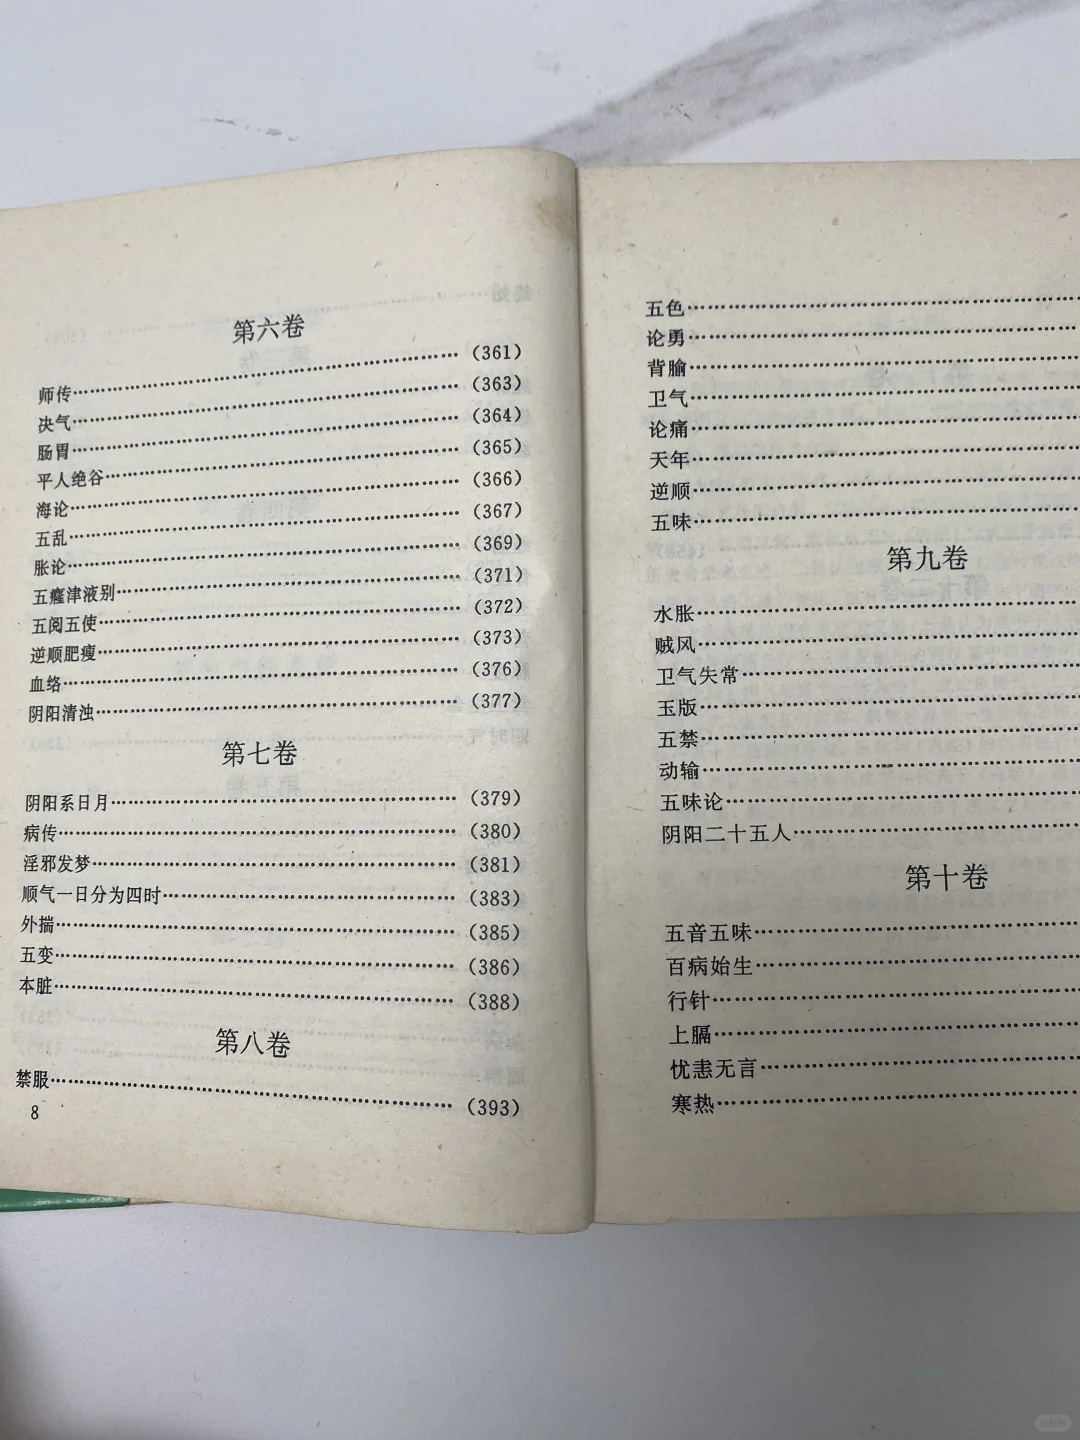 第六卷
师传……(361)
决气……(363)
肠胃……(364)
平人绝谷……(365)
海论……(366)
五乱……(367)
胀论……(369)
五癃津液别……(371)
五阅五使……(372)
逆顺肥瘦……(373)
血络……(376)
阴阳清浊……(377)
第七卷
阴阳系日月……(379)
病传……(380)
淫邪发梦……(381)
顺气一日分为四时……(383)
外揣……(385)
五变……(386)
本脏……(388)
第八卷
禁服……(393)
8
五色……
论勇……
背腧……
卫气……
论痛……
天年……
逆顺……
五味……
第九卷
水胀……
贼风……
卫气失常……
玉版……
五禁……
动输……
五味论……
阴阳二十五人……
第十卷
五音五味……
百病始生……
行针……
上膈……
忧恚无言……
寒热……
小红书